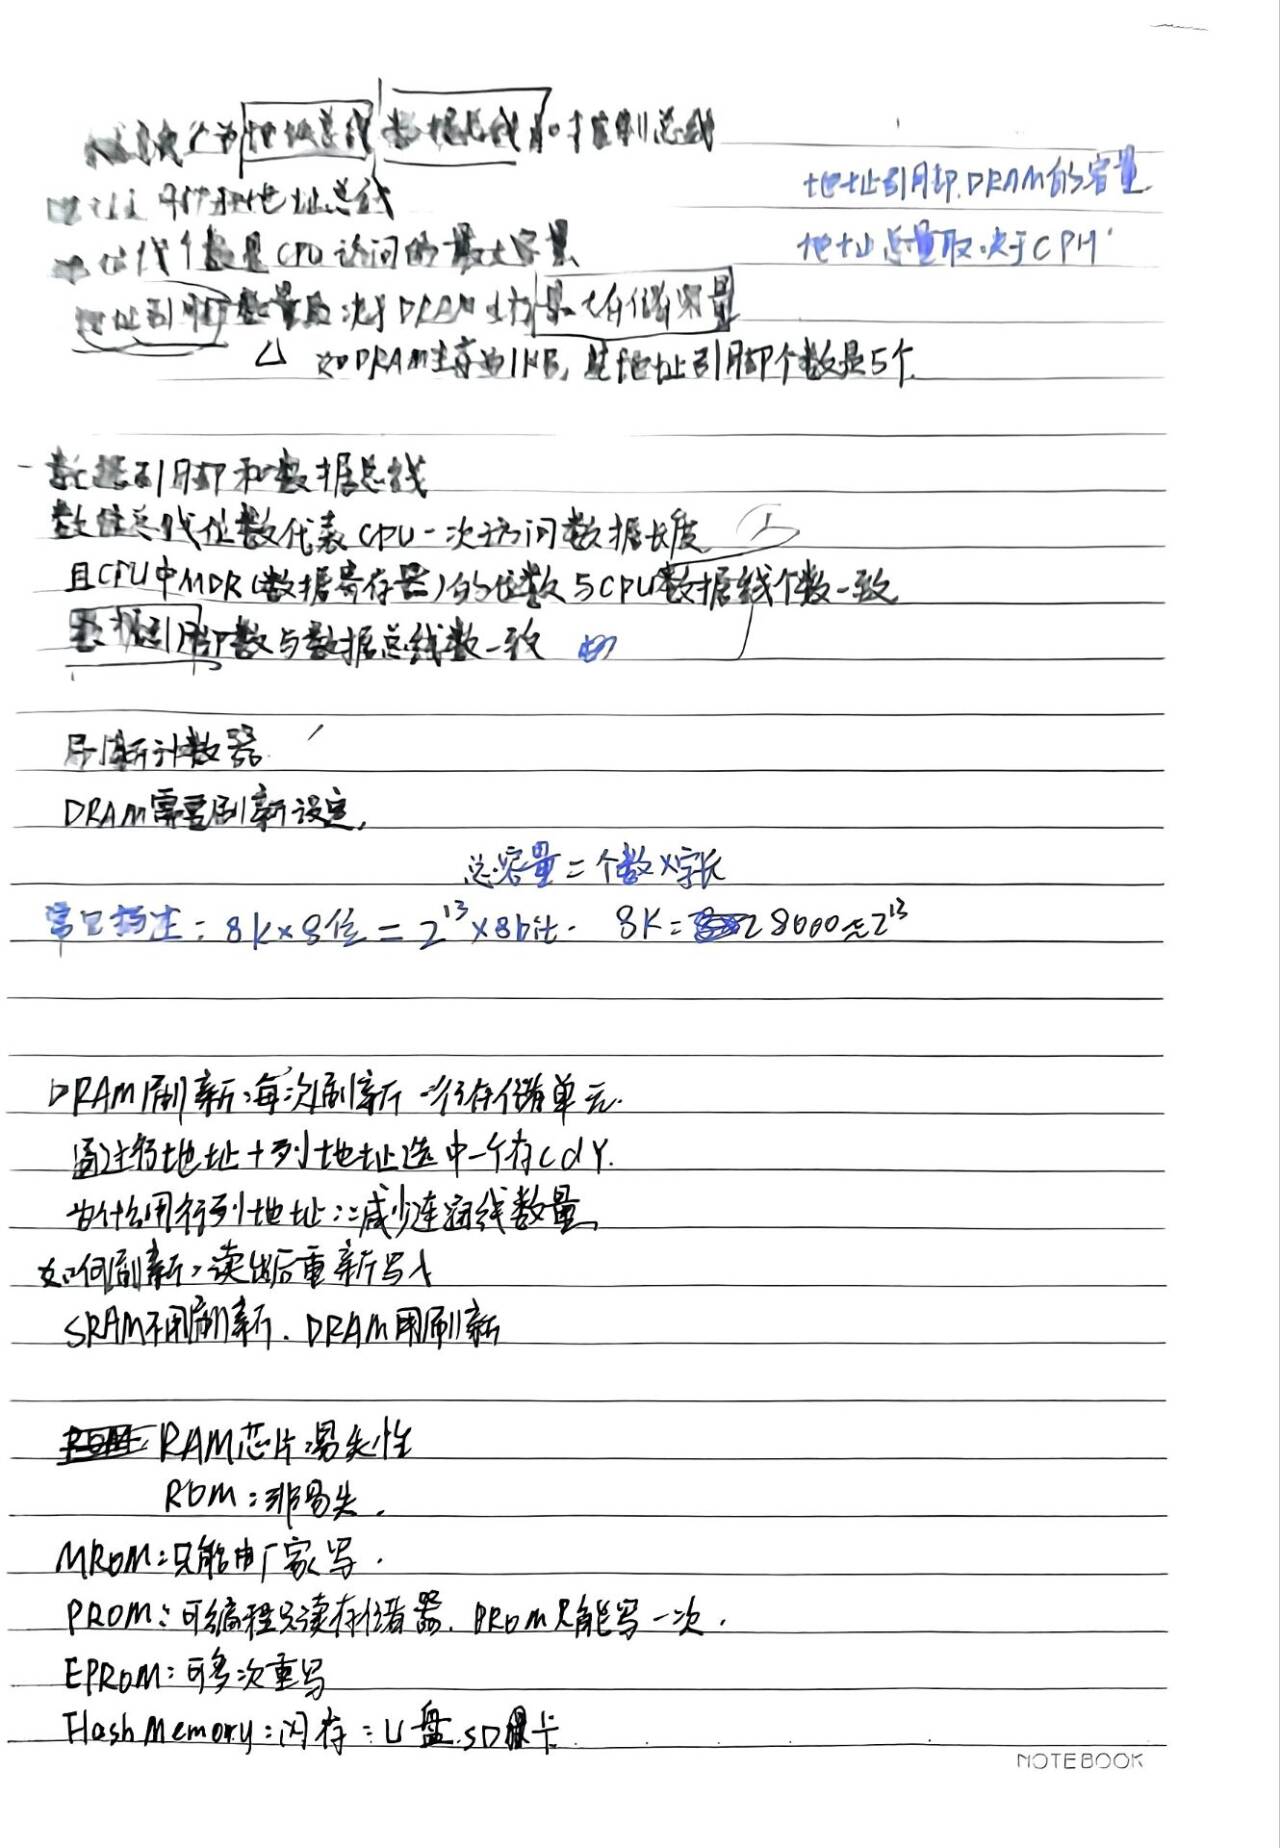 分为地址总线 数据总线和控制总线
地址引脚和地址总线
地址引脚DRAM的容量
代 个数是CPU访问的最大容量
地址总量取决于CPU
地址引脚数量取决于DRAM 最大存储容量
△ 如DRAM主存为1MB, 其地址引脚个数是5个
数据引脚和数据总线
数据总线位数代表CPU一次访问数据长度
且CPU中MDR(数据寄存器)的位数与CPU数据线个数一致
数据引脚数与数据总线数一致
刷新计数器
DRAM需要刷新设定,
总容量=个数×字长
常见 : 8K×8位=2^13×8bit. 8K= 8000≈2^13
DRAM刷新:每次刷新一行存储单元.
通过行地址+列地址选中一个存cdY.
为什么用行列地址:减少连 线数量
如何刷新:读出后重新写入
SRAM不用刷新. DRAM用刷新
RAM芯片:易失性
ROM:非易失.
MROM:只能由厂家写.
PROM:可编程只读存储器. PROM只能写一次.
EPROM:可多次重写
Flash Memory:闪存:U盘.SD 卡
NOTEBOOK